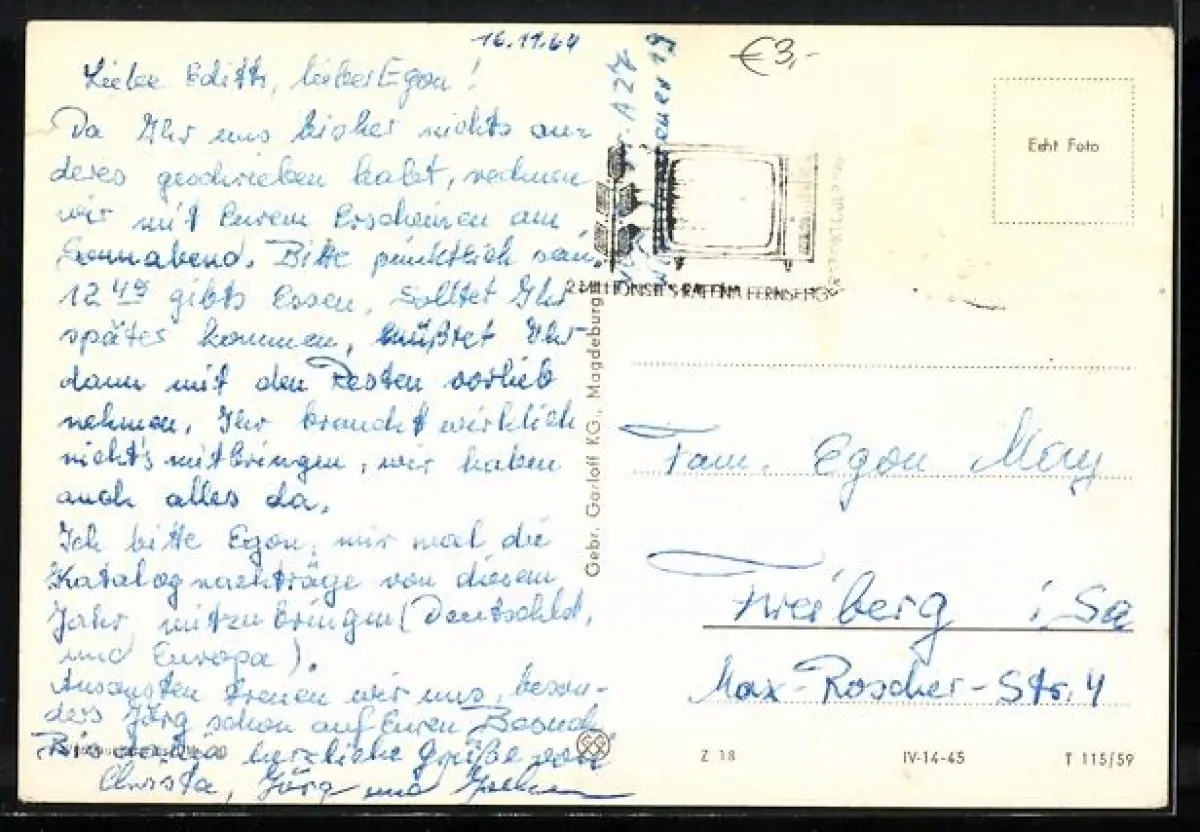 16.11.64
€3,-
Liebe Edith, lieber Egon!
Da Ihr uns bisher nichts an-
deres geschrieben habt, rechnen
wir mit Eurem Erscheinen am
Sonnabend. Bitte pünktlich sein.
12 45 gibts Essen. Solltet Ihr
später kommen, müßtet Ihr
dann mit den Resten vorlieb
nehmen. Ihr braucht wirklich
nichts mitbringen, wir haben
auch alles da.
Ich bitte Egon, mir mal die
Katalognachträge von diesem
Jahr mitzubringen (Deutschld.
und Europa).
Ansonsten freuen wir uns, beson-
ders Jörg schon auf Euren Besuch.
Bis dahin herzliche Grüße von
Christa, Jörg und
A 27
19
2 MILLIONSTES RAFENA FERNSEHG
Gebr. Garloff KG, Magdeburg
Echt Foto
Fam. Egon May
Freiberg i. Sa
Max-Roscher-Str. 4
Z 18
IV-14-45
T 115/59